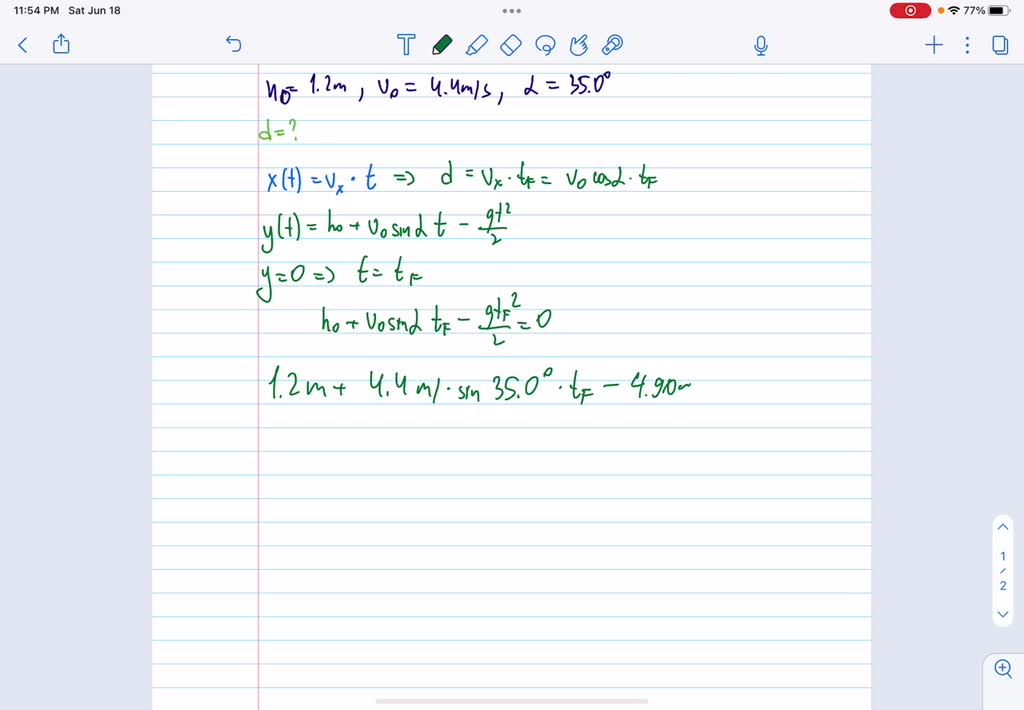 11:54 PM Sat Jun 18 77%
h₀= 1.2m , v₀ = 4.4m/s, α = 35.0°
d=?
x(t) = vₓ · t => d = vₓ · t_F = v₀ cosα · t_F
y(t) = h₀ + v₀ sinα t - gt²/2
y=0 => t = t_F
h₀ + v₀ sinα t_F - gt_F²/2 = 0
1.2m + 4.4 m/ · sin 35.0° · t_F - 4.90m
1
/
2